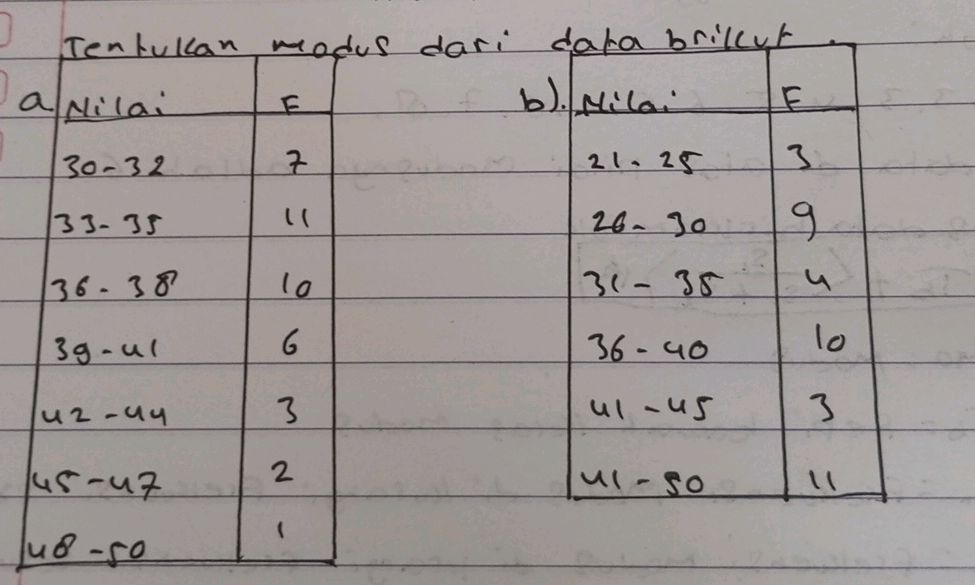 Tentukan modus dari data brikut.
a. Nilai F
30-32 7
33-35 11
36-38 10
39-41 6
42-44 3
45-47 2
48-50 1
b). Nilai F
21-25 3
26-30 9
31-35 4
36-40 10
41-45 3
41-50 11